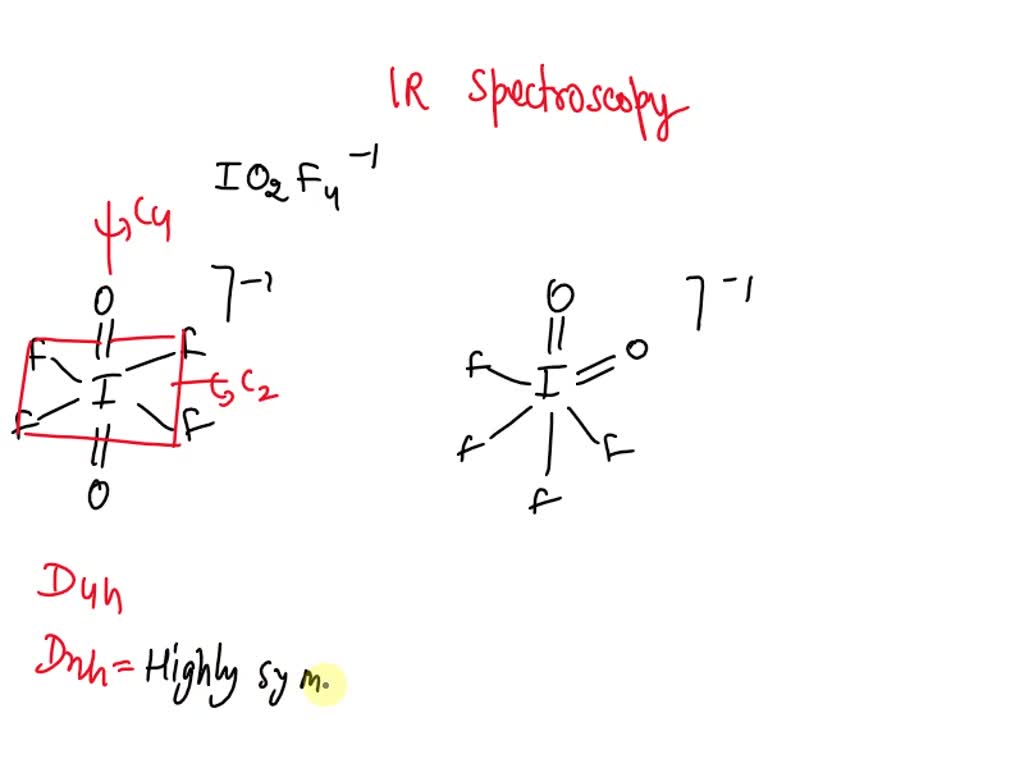 IR Spectroscopy
IO2F4 -1
C4
O
F F
I
F F
O
]-1
C2
O
O
F I
F F
F
]-1
D4h
Dnh = Highly sym.